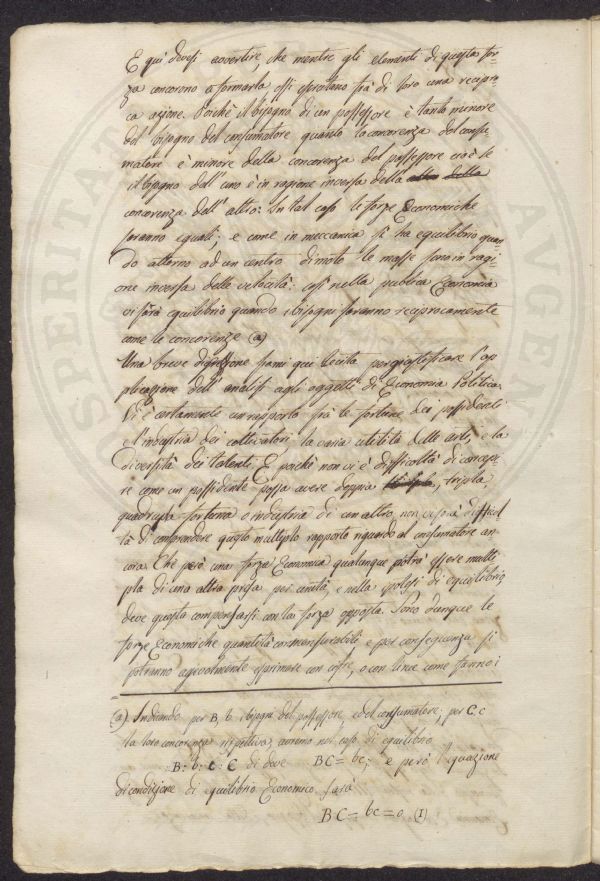 E qui devesi avvertire, che mentre gli elementi di questa for-
za concorono a formarla, essi esercitano frà di loro una recipro-
ca azione. Poichè il bisogno di un possessore è tanto minore
del bisogno del consumatore quanto la concorenza del consu-
matore è minore della concorenza del possessore cioè se
il bisogno dell'uno è in ragione inversa della
concorenza dell'altro: In tal caso le forze Economiche
saranno eguali; e come in meccanica si ha equilibrio quan-
do attorno ad un centro di moto le masse sono in ragi-
one inversa delle velocità: così nella publica Economia
vi sarà equilibrio quando i bisogni saranno reciprocamente
come le concorenze (a)
Una breve digressione siami qui lecita per giustificare l'ap-
plicazione dell'analisi agli oggetti di Economia Politica.
Vi è certamente un rapporto frà le fortune dei possidenti
e l'industria dei coltivatori: la varia utilità delle arti, e la
diversità dei talenti. E poichè non vi è difficoltà di concepi-
re come un possidente possa avere doppia, tripla
quadrupla fortuna o industria di un altro, non vi sarà difficol-
tà di comprendere questo multiplo rapporto riguardo al consumatore an-
cora. Che però una forza Economica qualunque potrà essere multi-
pla di una altra presa per unità, e nella ipotesi di equilibrio
deve questa compensarsi con la forza opposta. Sono dunque le
forze Economiche quantità commensurabili e per conseguenza si
potranno agevolmente esprimere con cifre, o con linee come fanno i
(a) Indicando per B, b i bisogni del possessore, e del consumatore; per C. c
la loro concorenza rispettiva, avremo nel caso di equilibrio
B: b: c: C di dove BC = bc; e però l'equazione
di condizione di equilibrio Economico sarà
BC = bc = 0 (I)